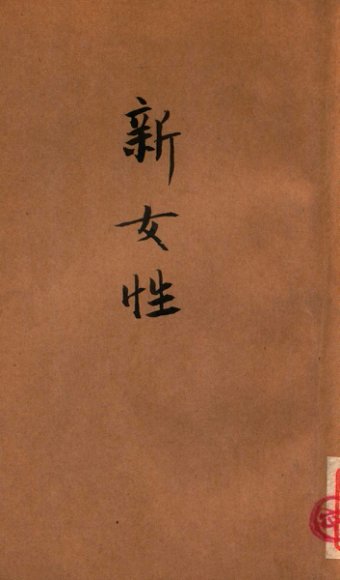 新女性